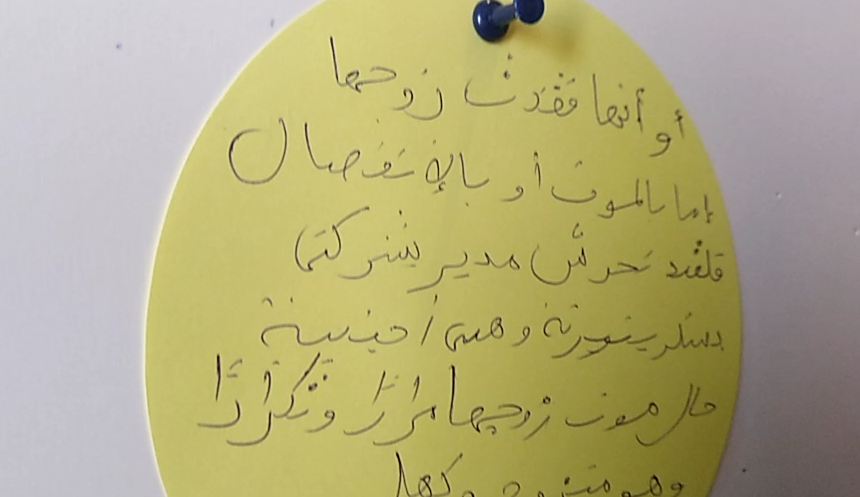 أو أنها فقدت زوجها
إما بالموت أو بالإنفصال
فلقد تحرش مدير شركتها
بسكرتيرته وهي أجنبية
حال موت زوجها مرارًا وتكرارًا
وهو متزوج وكهل